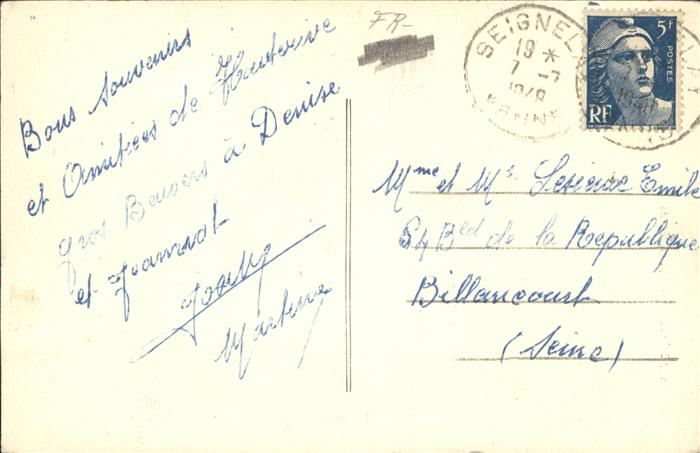 Bons Souvenirs
et Amitiées de Hauterive
Gros Baisers à Denise
et
Martine
FR-
SEIGNEL
19 *
7 - 7
1948
YONNE
5F
POSTES
RF
Mme et Mr Emile
54 Bled de la République
Billancourt
(Seine)